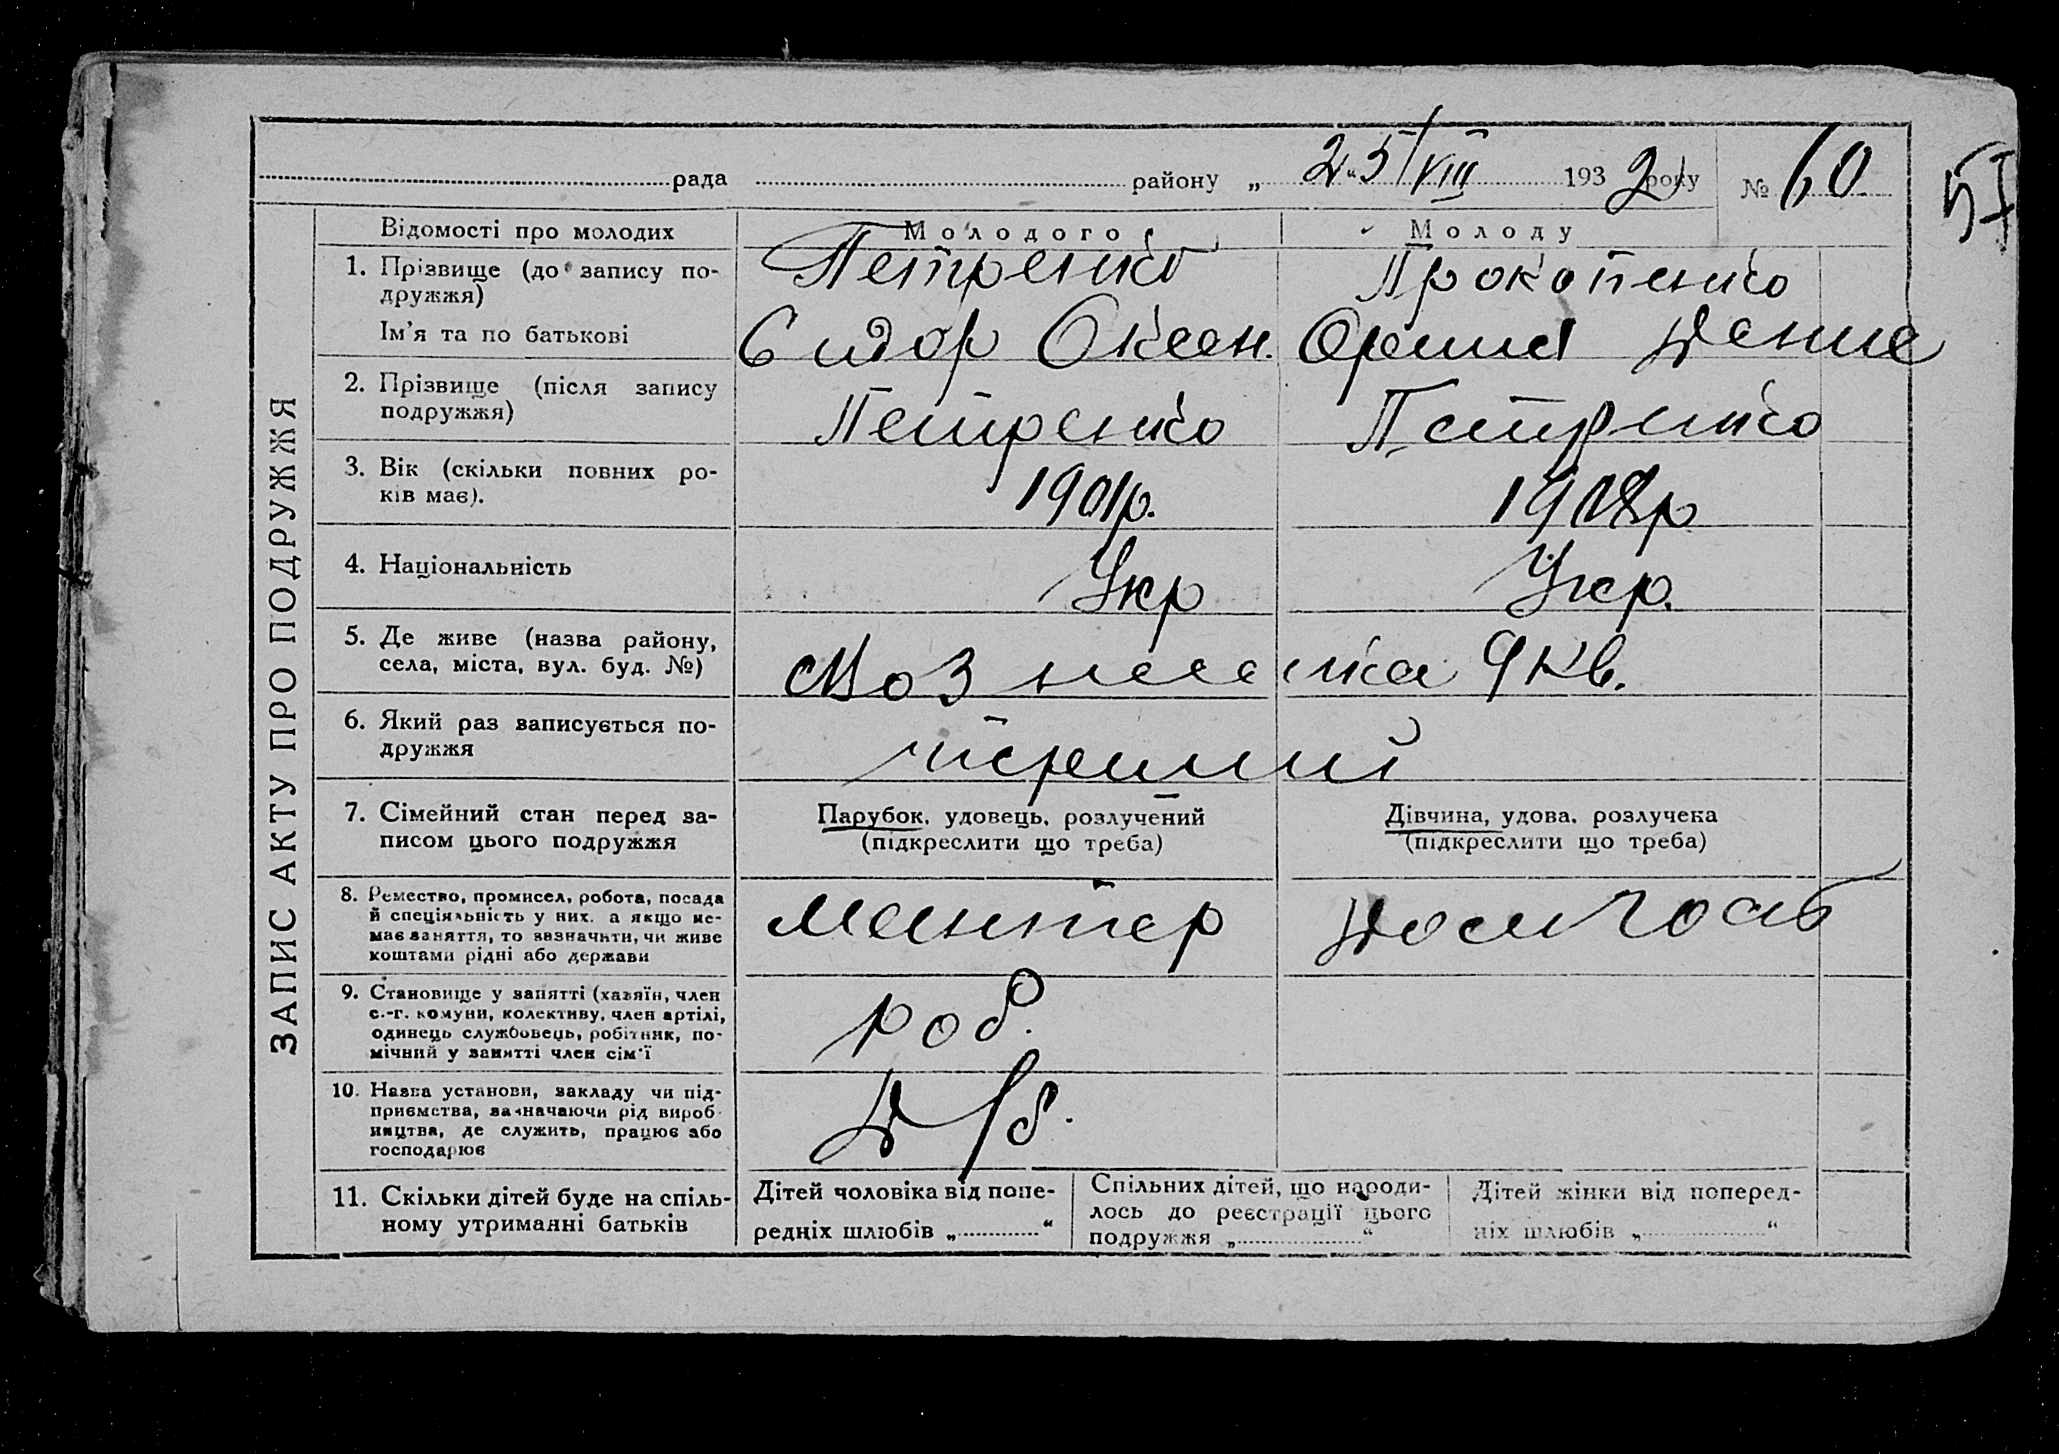 рада района „ 25/VIII 1932 року № 60
51
ЗАПИС АКТУ ПРО ПОДРУЖЖЯ
Відомості про молодих Молодого Молоду
1. Прізвище (до запису по-
дружжя)
Петренко Прокопенко
Ім'я та по батькові
Сидор Оксен. Орина Дение
2. Прізвище (після запису
подружжя)
Петренко Петренко
3. Вік (скільки повних ро-
ків має).
1901р. 1908р
4. Національність
Укр Укр.
5. Де живе (назва району,
села, міста, вул. буд. №)
Вознесенка 9 кв.
6. Який раз записується по-
дружжя
перший
7. Сімейний стан перед за-
писом цього подружжя
Парубок, удовець, розлучений
(підкреслити що треба)
Дівчина, удова, розлучека
(підкреслити що треба)
8. Ремество, промисел, робота, посада
й спеціяльність у них, а якщо не-
має заняття, то зазначити, чи живе
коштами рідні або держави
монтер домгосп
9. Становище у занятті (хазяїн, член
с.-г. комуни, колективу, член артілі,
одинець службовець, робітник, по-
мічний у занятті член сім'ї
роб.
10. Назва установи, закладу чи під-
приємства, зазначаючи рід вироб-
ництва, де служить, працює або
господарює
Д/б.
11. Скільки дітей буде на спіль-
ному утриманні батьків
Дітей чоловіка від попе-
редніх шлюбів „ “
Спільних дітей, що народи-
лось до реєстрації цього
подружжя „ “
Дітей жінки від поперед-
ніх шлюбів „ “